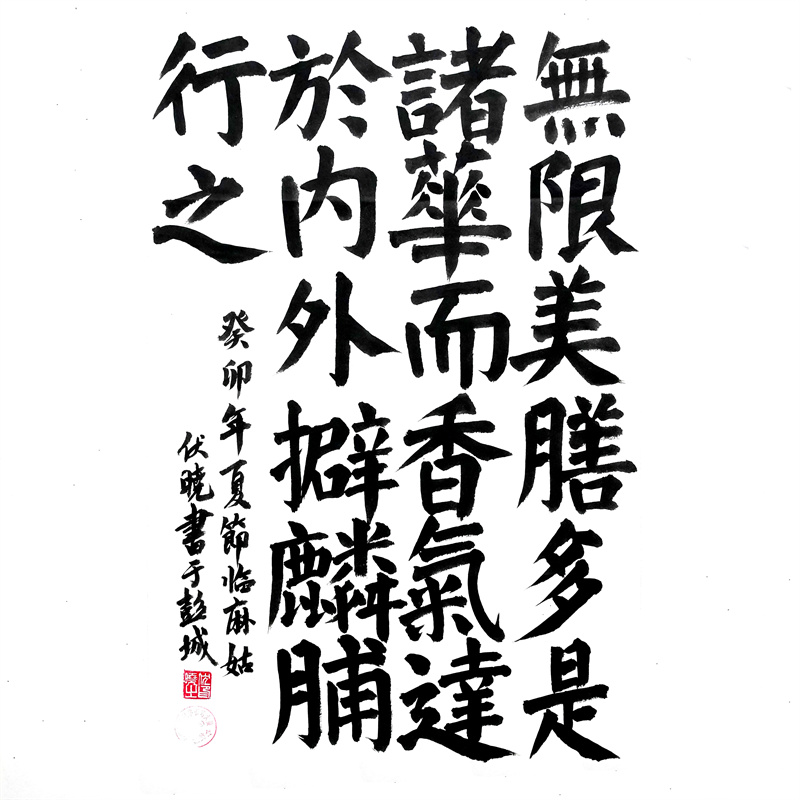 無限美膳多是
諸華而香氣達
於内外擗麟脯
行之
癸卯年夏節临麻姑
伏曉書于彭城